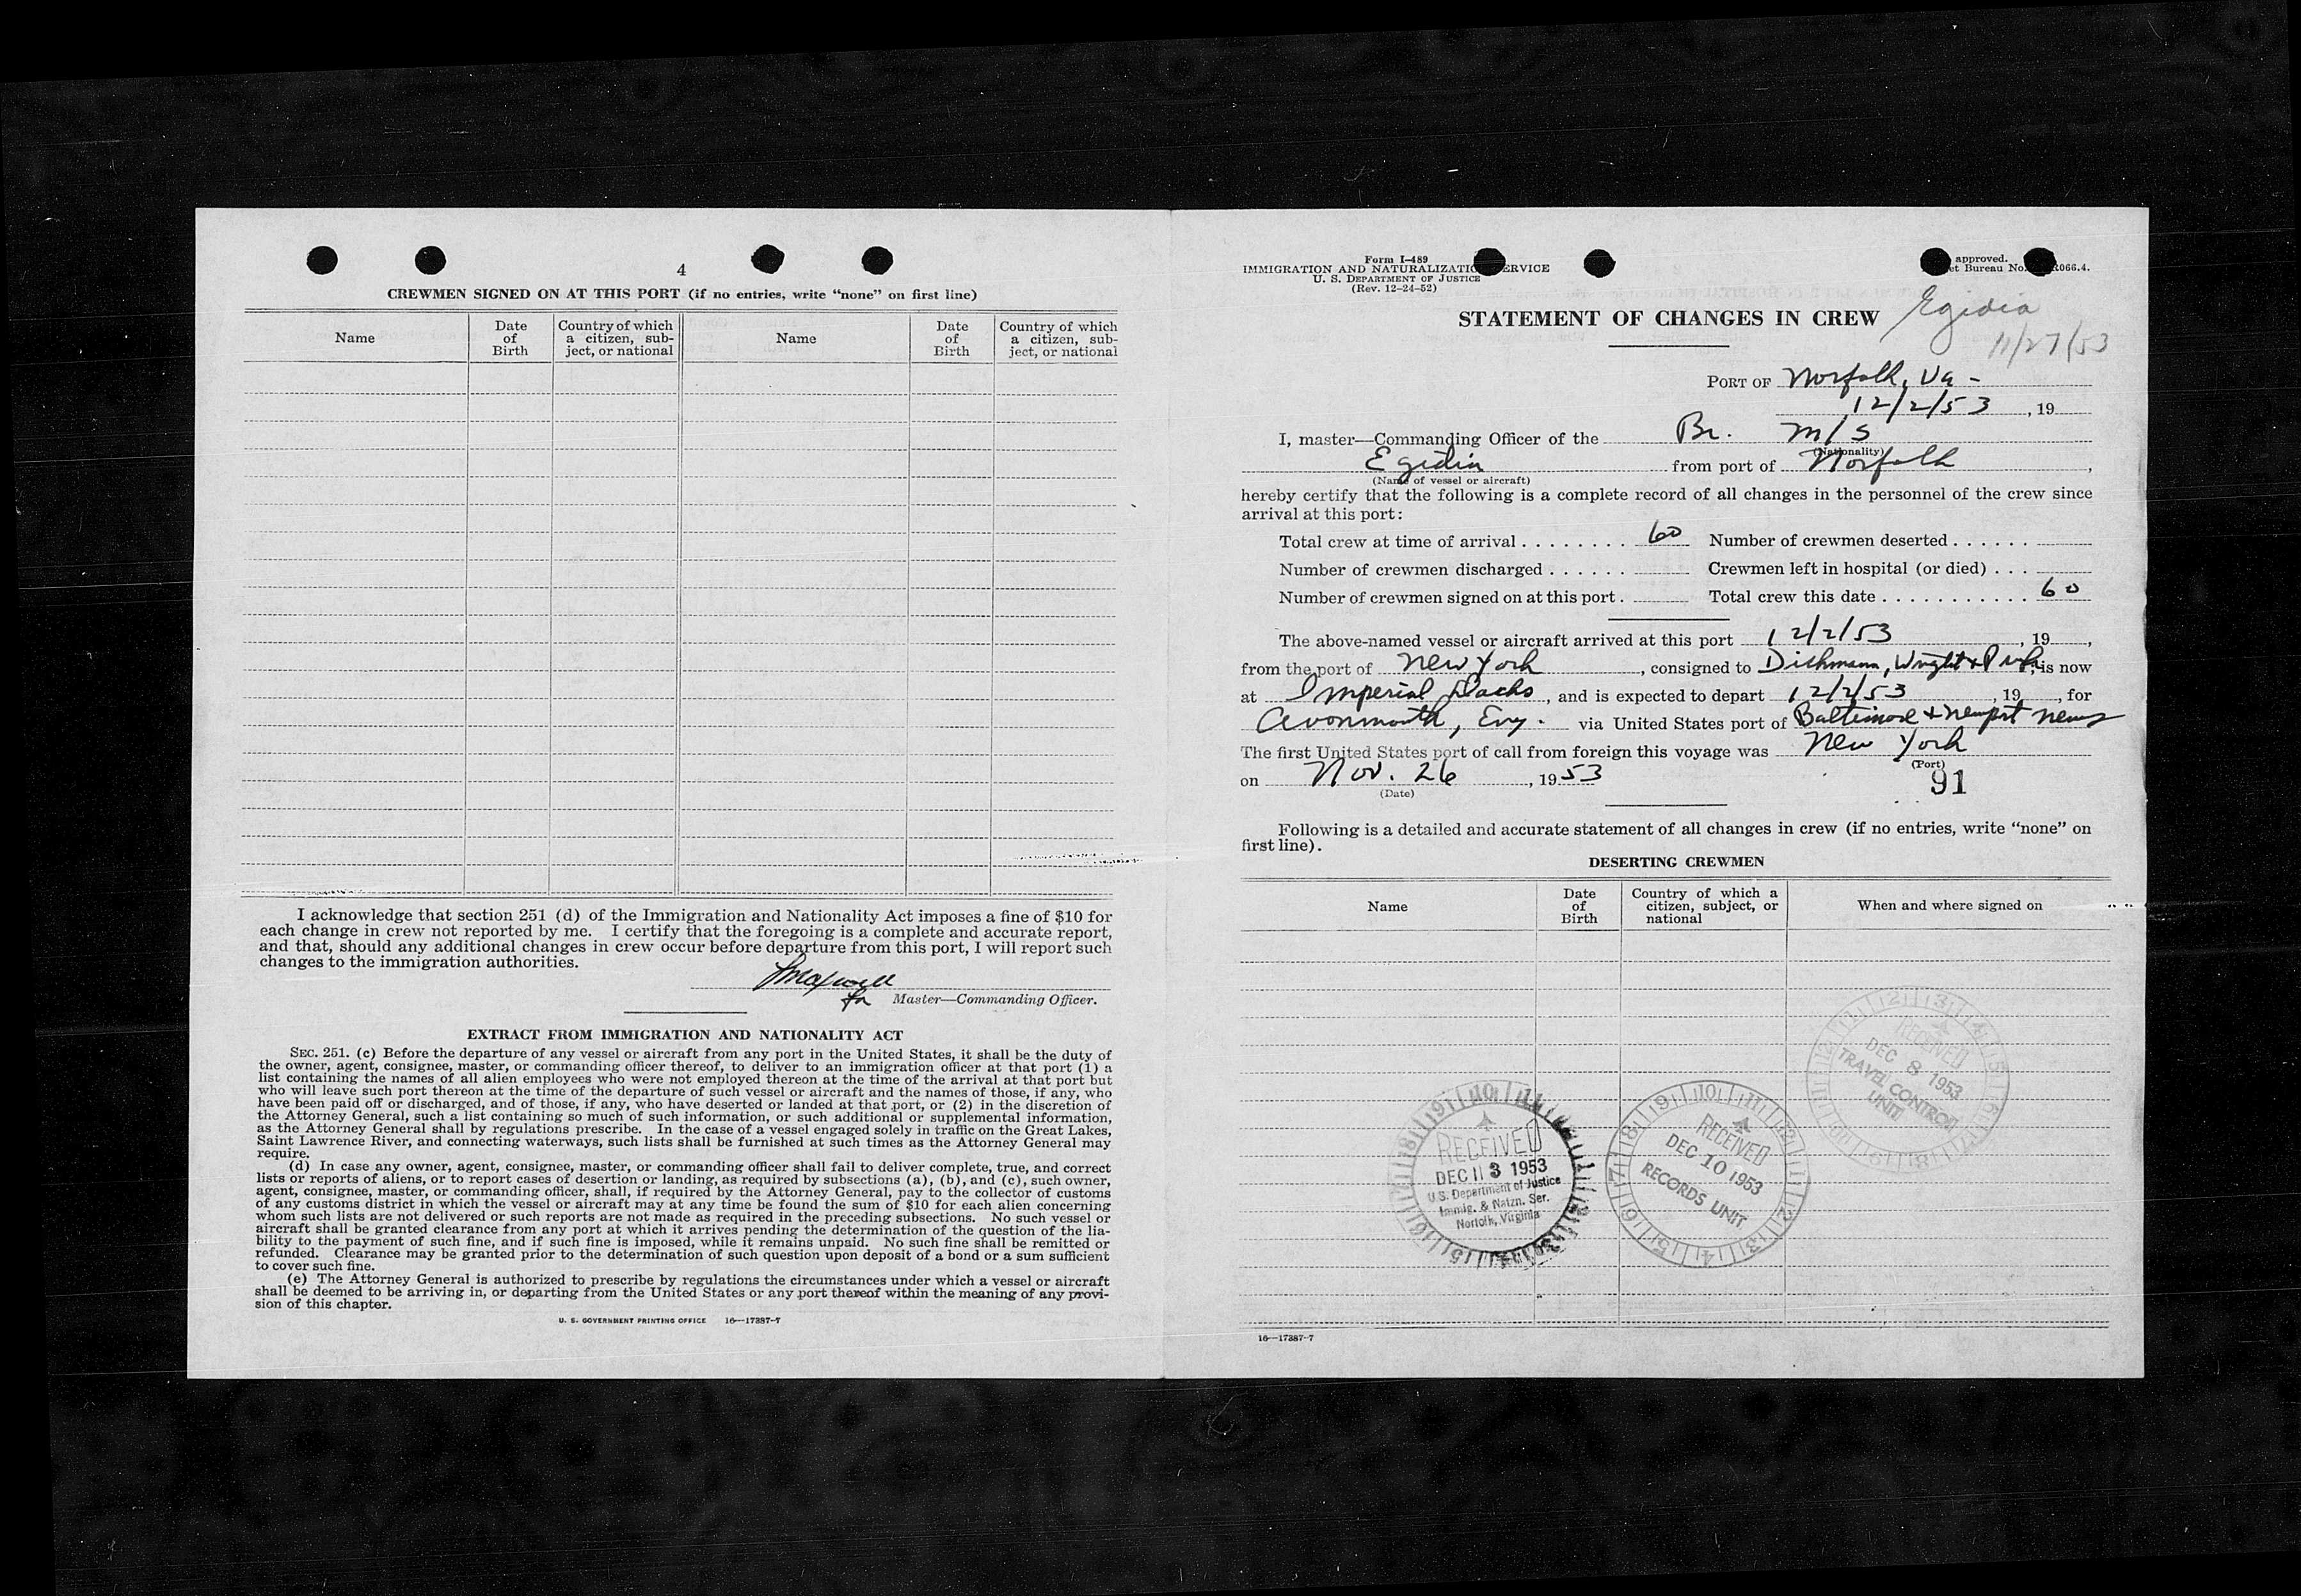 4
CREWMEN SIGNED ON AT THIS PORT (if no entries, write “none” on first line)
Name
Date of Birth
Country of which a citizen, subject, or national
Name
Date of Birth
Country of which a citizen, subject, or national
I acknowledge that section 251 (d) of the Immigration and Nationality Act imposes a fine of $10 for
each change in crew not reported by me. I certify that the foregoing is a complete and accurate report,
and that, should any additional changes in crew occur before departure from this port, I will report such
changes to the immigration authorities.
Maxwell
for Master—Commanding Officer.
EXTRACT FROM IMMIGRATION AND NATIONALITY ACT
SEC. 251. (c) Before the departure of any vessel or aircraft from any port in the United States, it shall be the duty of
the owner, agent, consignee, master, or commanding officer thereof, to deliver to an immigration officer at that port (1) a
list containing the names of all alien employees who were not employed thereon at the time of the arrival at that port but
who will leave such port thereon at the time of the departure of such vessel or aircraft and the names of those, if any, who
have been paid off or discharged, and of those, if any, who have deserted or landed at that port, or (2) in the discretion of
the Attorney General, such a list containing so much of such information, or such additional or supplemental information,
as the Attorney General shall by regulations prescribe. In the case of a vessel engaged solely in traffic on the Great Lakes,
Saint Lawrence River, and connecting waterways, such lists shall be furnished at such times as the Attorney General may
require.
(d) In case any owner, agent, consignee, master, or commanding officer shall fail to deliver complete, true, and correct
lists or reports of aliens, or to report cases of desertion or landing, as required by subsections (a), (b), and (c), such owner,
agent, consignee, master, or commanding officer, shall, if required by the Attorney General, pay to the collector of customs
of any customs district in which the vessel or aircraft may at any time be found the sum of $10 for each alien concerning
whom such lists are not delivered or such reports are not made as required in the preceding subsections. No such vessel or
aircraft shall be granted clearance from any port at which it arrives pending the determination of the question of the lia-
bility to the payment of such fine, and if such fine is imposed, while it remains unpaid. No such fine shall be remitted or
refunded. Clearance may be granted prior to the determination of such question upon deposit of a bond or a sum sufficient
to cover such fine.
(e) The Attorney General is authorized to prescribe by regulations the circumstances under which a vessel or aircraft
shall be deemed to be arriving in, or departing from the United States or any port thereof within the meaning of any provi-
sion of this chapter.
U. S. GOVERNMENT PRINTING OFFICE 16—17387-7
Form I-489
IMMIGRATION AND NATURALIZATION SERVICE
U. S. DEPARTMENT OF JUSTICE
(Rev. 12-24-52)
approved.
et Bureau No. R066.4.
STATEMENT OF CHANGES IN CREW
Egidia
11/27/53
PORT OF Norfolk, Va -
12/2/53, 19
I, master—Commanding Officer of the Br. M/S
(Nationality)
Egidia from port of Norfolk,
(Name of vessel or aircraft)
hereby certify that the following is a complete record of all changes in the personnel of the crew since
arrival at this port:
Total crew at time of arrival . . . . . . . . 60 Number of crewmen deserted . . . . . .
Number of crewmen discharged . . . . . . Crewmen left in hospital (or died) . . .
Number of crewmen signed on at this port . Total crew this date . . . . . . . . . . . 60
The above-named vessel or aircraft arrived at this port 12/2/53, 19,
from the port of New York, consigned to Dichmann, Wright & Pugh, is now
at Imperial Docks, and is expected to depart 12/2/53, 19, for
Avonmouth, Eng. via United States port of Baltimore & Newport News
The first United States port of call from foreign this voyage was New York
(Port)
on Nov. 26, 1953
(Date)
91
Following is a detailed and accurate statement of all changes in crew (if no entries, write “none” on
first line).
DESERTING CREWMEN
Name
Date of Birth
Country of which a citizen, subject, or national
When and where signed on
RECEIVED
DEC 8 1953
TRAVEL CONTROL
UNIT
RECEIVED
DEC 3 1953
U.S. Department of Justice
Immig. & Natzn. Ser.
Norfolk, Virginia
RECEIVED
DEC 10 1953
RECORDS UNIT
16—17387-7